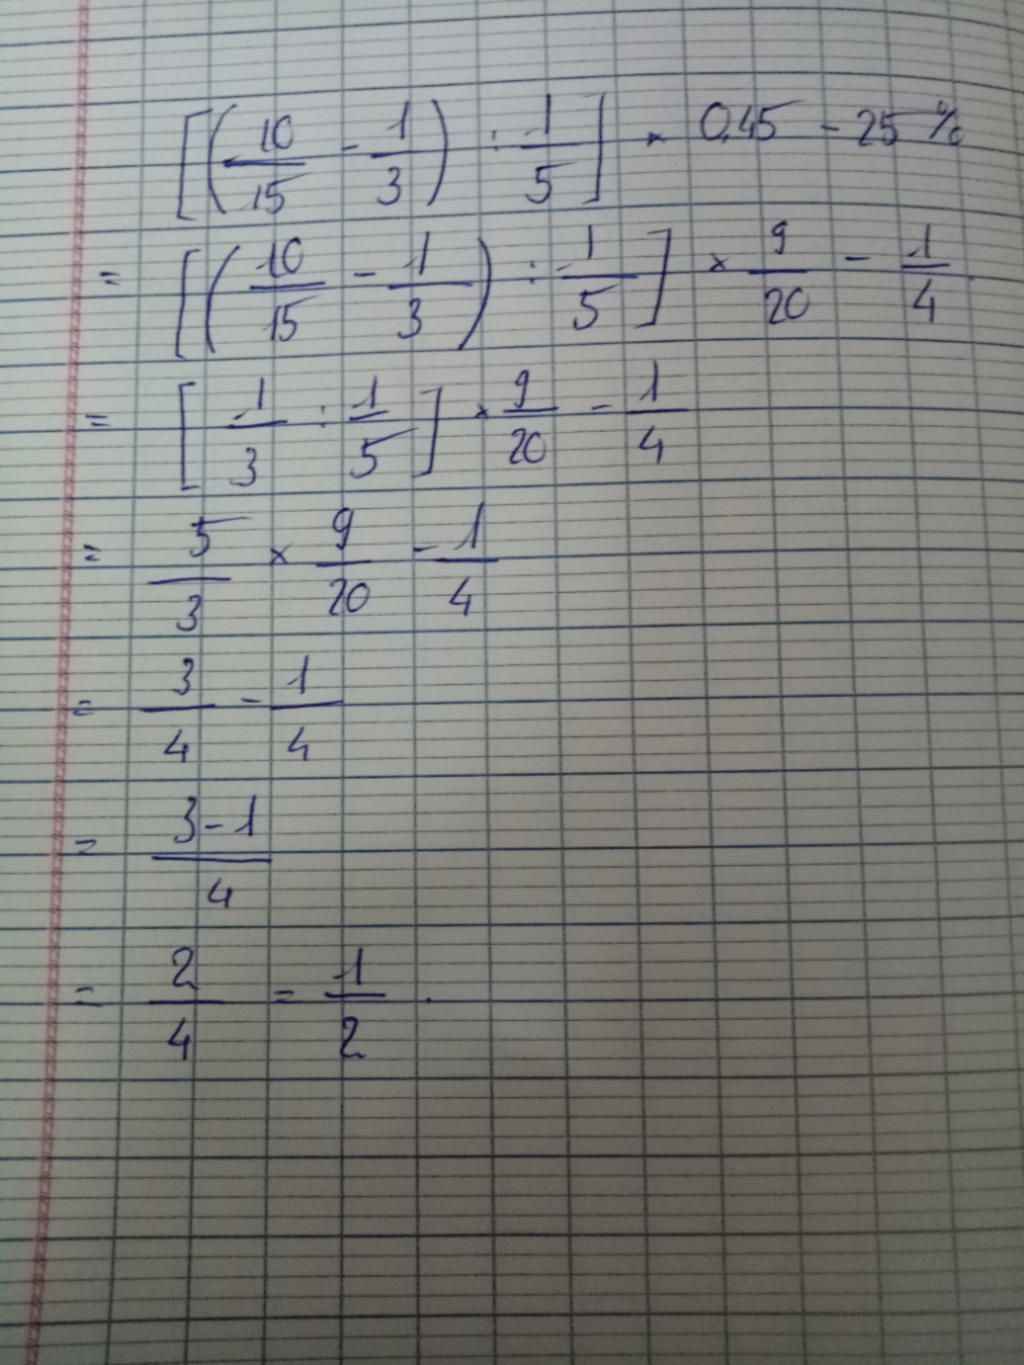 [(10/15 - 1/3) : 1/5] × 0,45 - 25 %
= [(10/15 - 1/3) : 1/5] × 9/20 - 1/4
= [1/3 : 1/5] × 9/20 - 1/4
= 5/3 × 9/20 - 1/4
= 3/4 - 1/4
= (3-1)/4
= 2/4 = 1/2 .